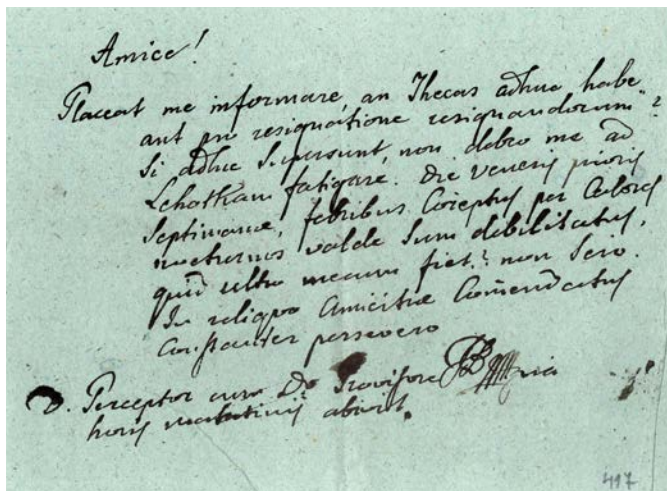 Amice!
Placeat me informare, an Thecas adhuc habe
ant pro resignatione resignandorum?
Si adhuc supersunt, non debeo me ad
Lehotkam fatigare. Die Veneris prioris
Septimanæ, febribus Correptus per Calores
nocturnos valde sum debilitatus,
quid ultro mecum fiet? non scio.
In reliquo Amicitiæ Com̄endatus
Constanter persevero
D. Perceptor cum Dō Provisore
horis matutinis abivit.
417